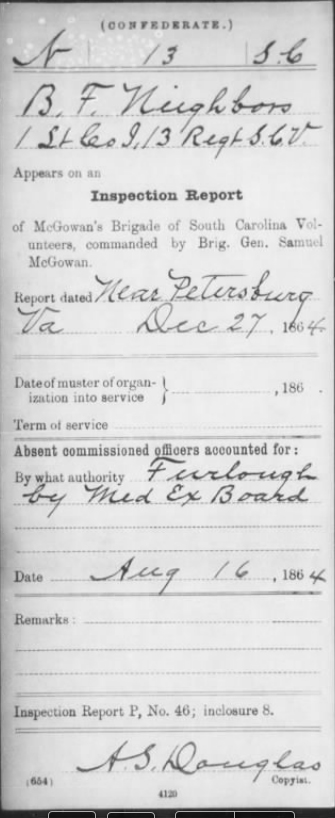 (CONFEDERATE.)
N | 13 | S. C
B. F. Neighbors
1 Lt Co I, 13 Regt S.C.V.
Appears on an
Inspection Report
of McGowan's Brigade of South Carolina Vol-
unteers, commanded by Brig. Gen. Samuel
McGowan.
Report dated Near Petersburg
Va Dec 27, 1864.
Date of muster of organ-
ization into service } , 186 .
Term of service
Absent commissioned officers accounted for:
By what authority Furlough
by Med Ex Board
Date Aug 16, 1864
Remarks:
Inspection Report P, No. 46; inclosure 8.
A. S. Douglas
(654) Copyist.
4129